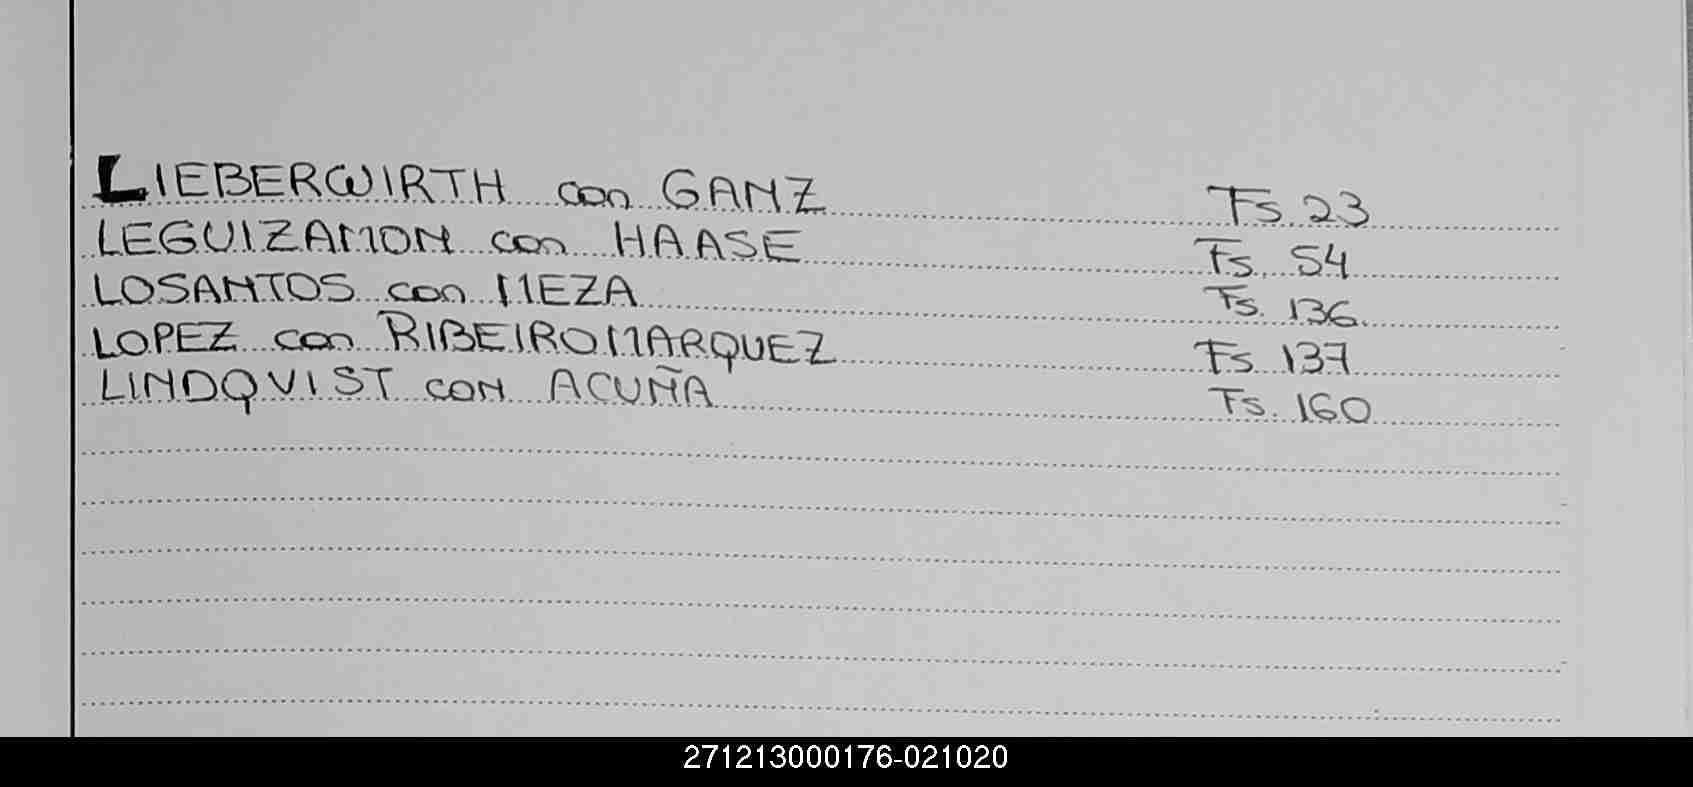 LIEBERWIRTH con GANZ Fs. 23
LEGUIZAMON con HAASE Fs. 54
LOSANTOS con MEZA Fs. 136
LOPEZ con RIBEIROMARQUEZ Fs. 137
LINDQVIST con ACUÑA Fs. 160
271213000176-021020